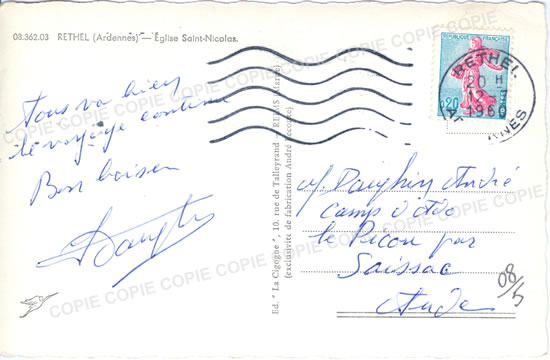 08.362.03 RETHEL (Ardennes) — Église Saint-Nicolas.
Tous va bien
le voyage continue
Bon baiser
REPUBLIQUE FRANÇAISE
0,20
RETHEL
20 H
1960
ARDENNES
Ed. "La Cigogne", 10, rue de Talleyrand
(exclusivité de fabrication André Leconte)
Dauphin André
camp d'Ado
le Picou par
Saissac
Aude
08/5
COPIE COPIE COPIE COPIE COPIE COPIE